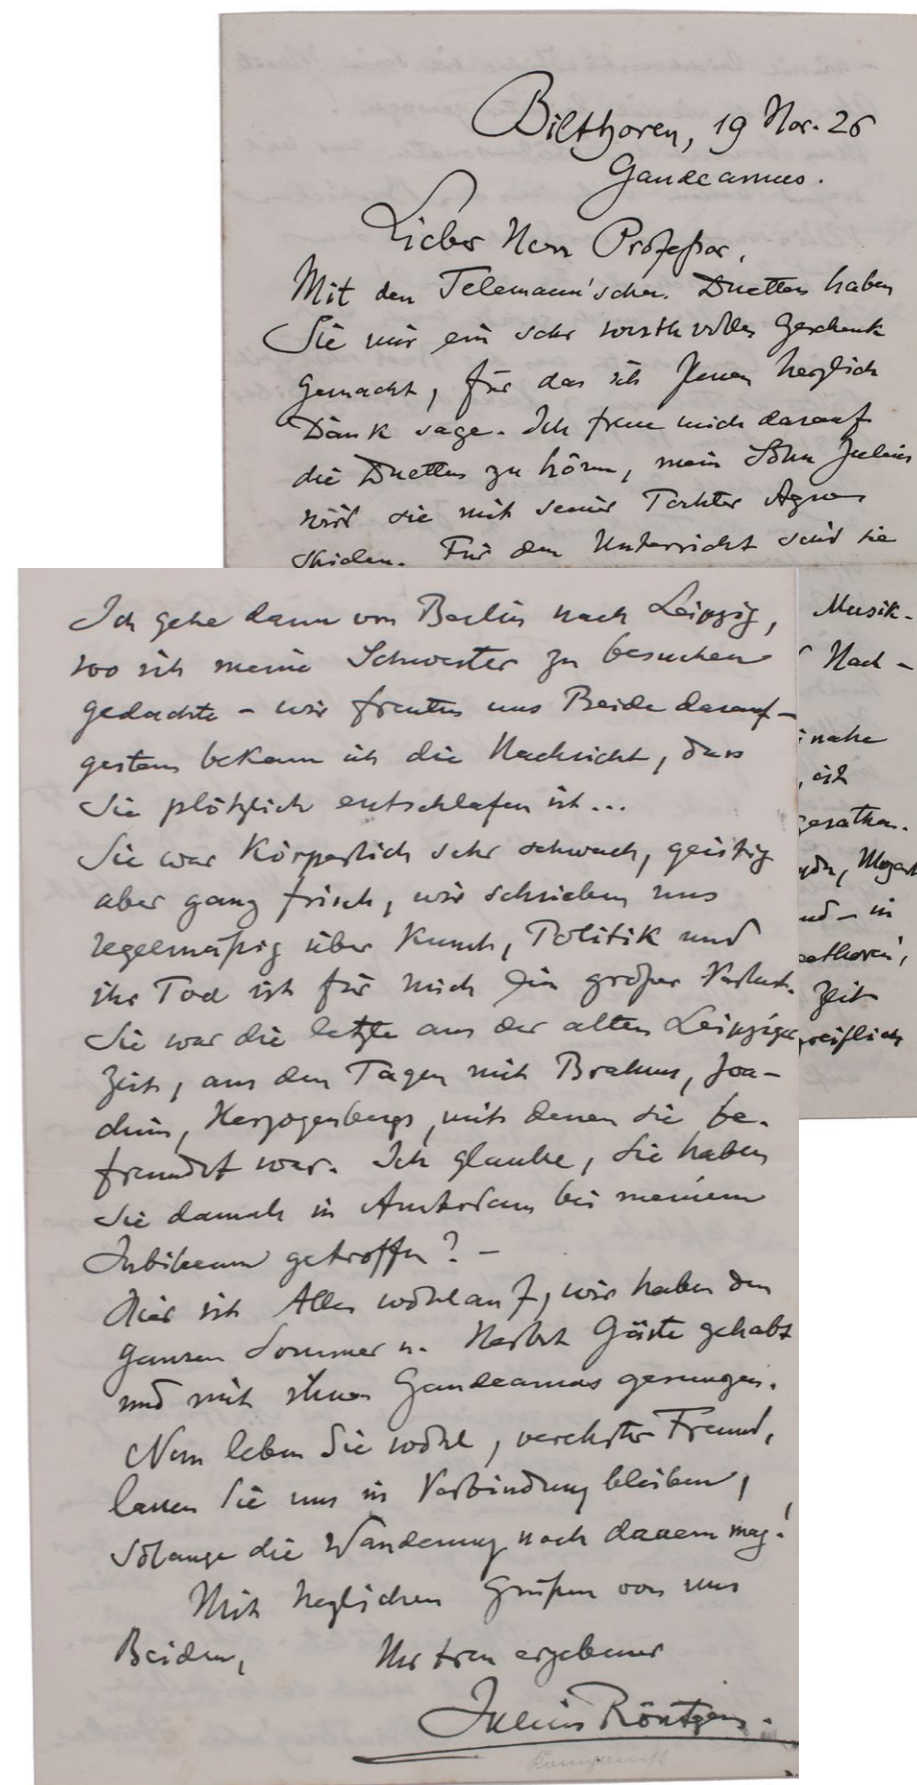 Bilthoven, 19 Nov. 26
Gaudeamus.
Lieber Herr Professor,
Mit den Telemann'schen Duetten haben
Sie mir ein sehr werthvolles Geschenk
gemacht, für das ich Ihnen herzlich
Dank sage. Ich freue mich darauf
die Duetten zu hören, mein Sohn Julius
wird sie mit seiner Tochter Agnes
spielen. Für den Unterricht sind sie
Musik-
Nach-
nahe
ist
gerathen.
Mozart
und – in
Beethoven,
Zeit
greiflich
Ich gehe dann von Berlin nach Leipzig,
wo ich meine Schwester zu besuchen
gedachte – wir freuten uns Beide darauf –
gestern bekam ich die Nachricht, dass
sie plötzlich entschlafen ist...
Sie war körperlich sehr schwach, geistig
aber ganz frisch, wir schrieben uns
regelmäßig über Kunst, Politik und
ihr Tod ist für mich ein großer Verlust.
Sie war die letzte aus der alten Leipziger
Zeit, aus den Tagen mit Brahms, Joa-
chim, Herzogenbergs, mit denen sie be-
freundet war. Ich glaube, Sie haben
sie damals in Amsterdam bei meinem
Jubileum getroffen? –
Hier ist Alles wohlauf, wir haben den
ganzen Sommer u. Herbst Gäste gehabt
und mit ihnen Gaudeamus gesungen.
Nun leben Sie wohl, verehrter Freund,
lassen Sie uns in Verbindung bleiben,
solange die Wanderung noch dauern mag!
Mit herzlichen Grüßen von uns
Beiden, Ihr treu ergebener
Julius Röntgen.
Komponist